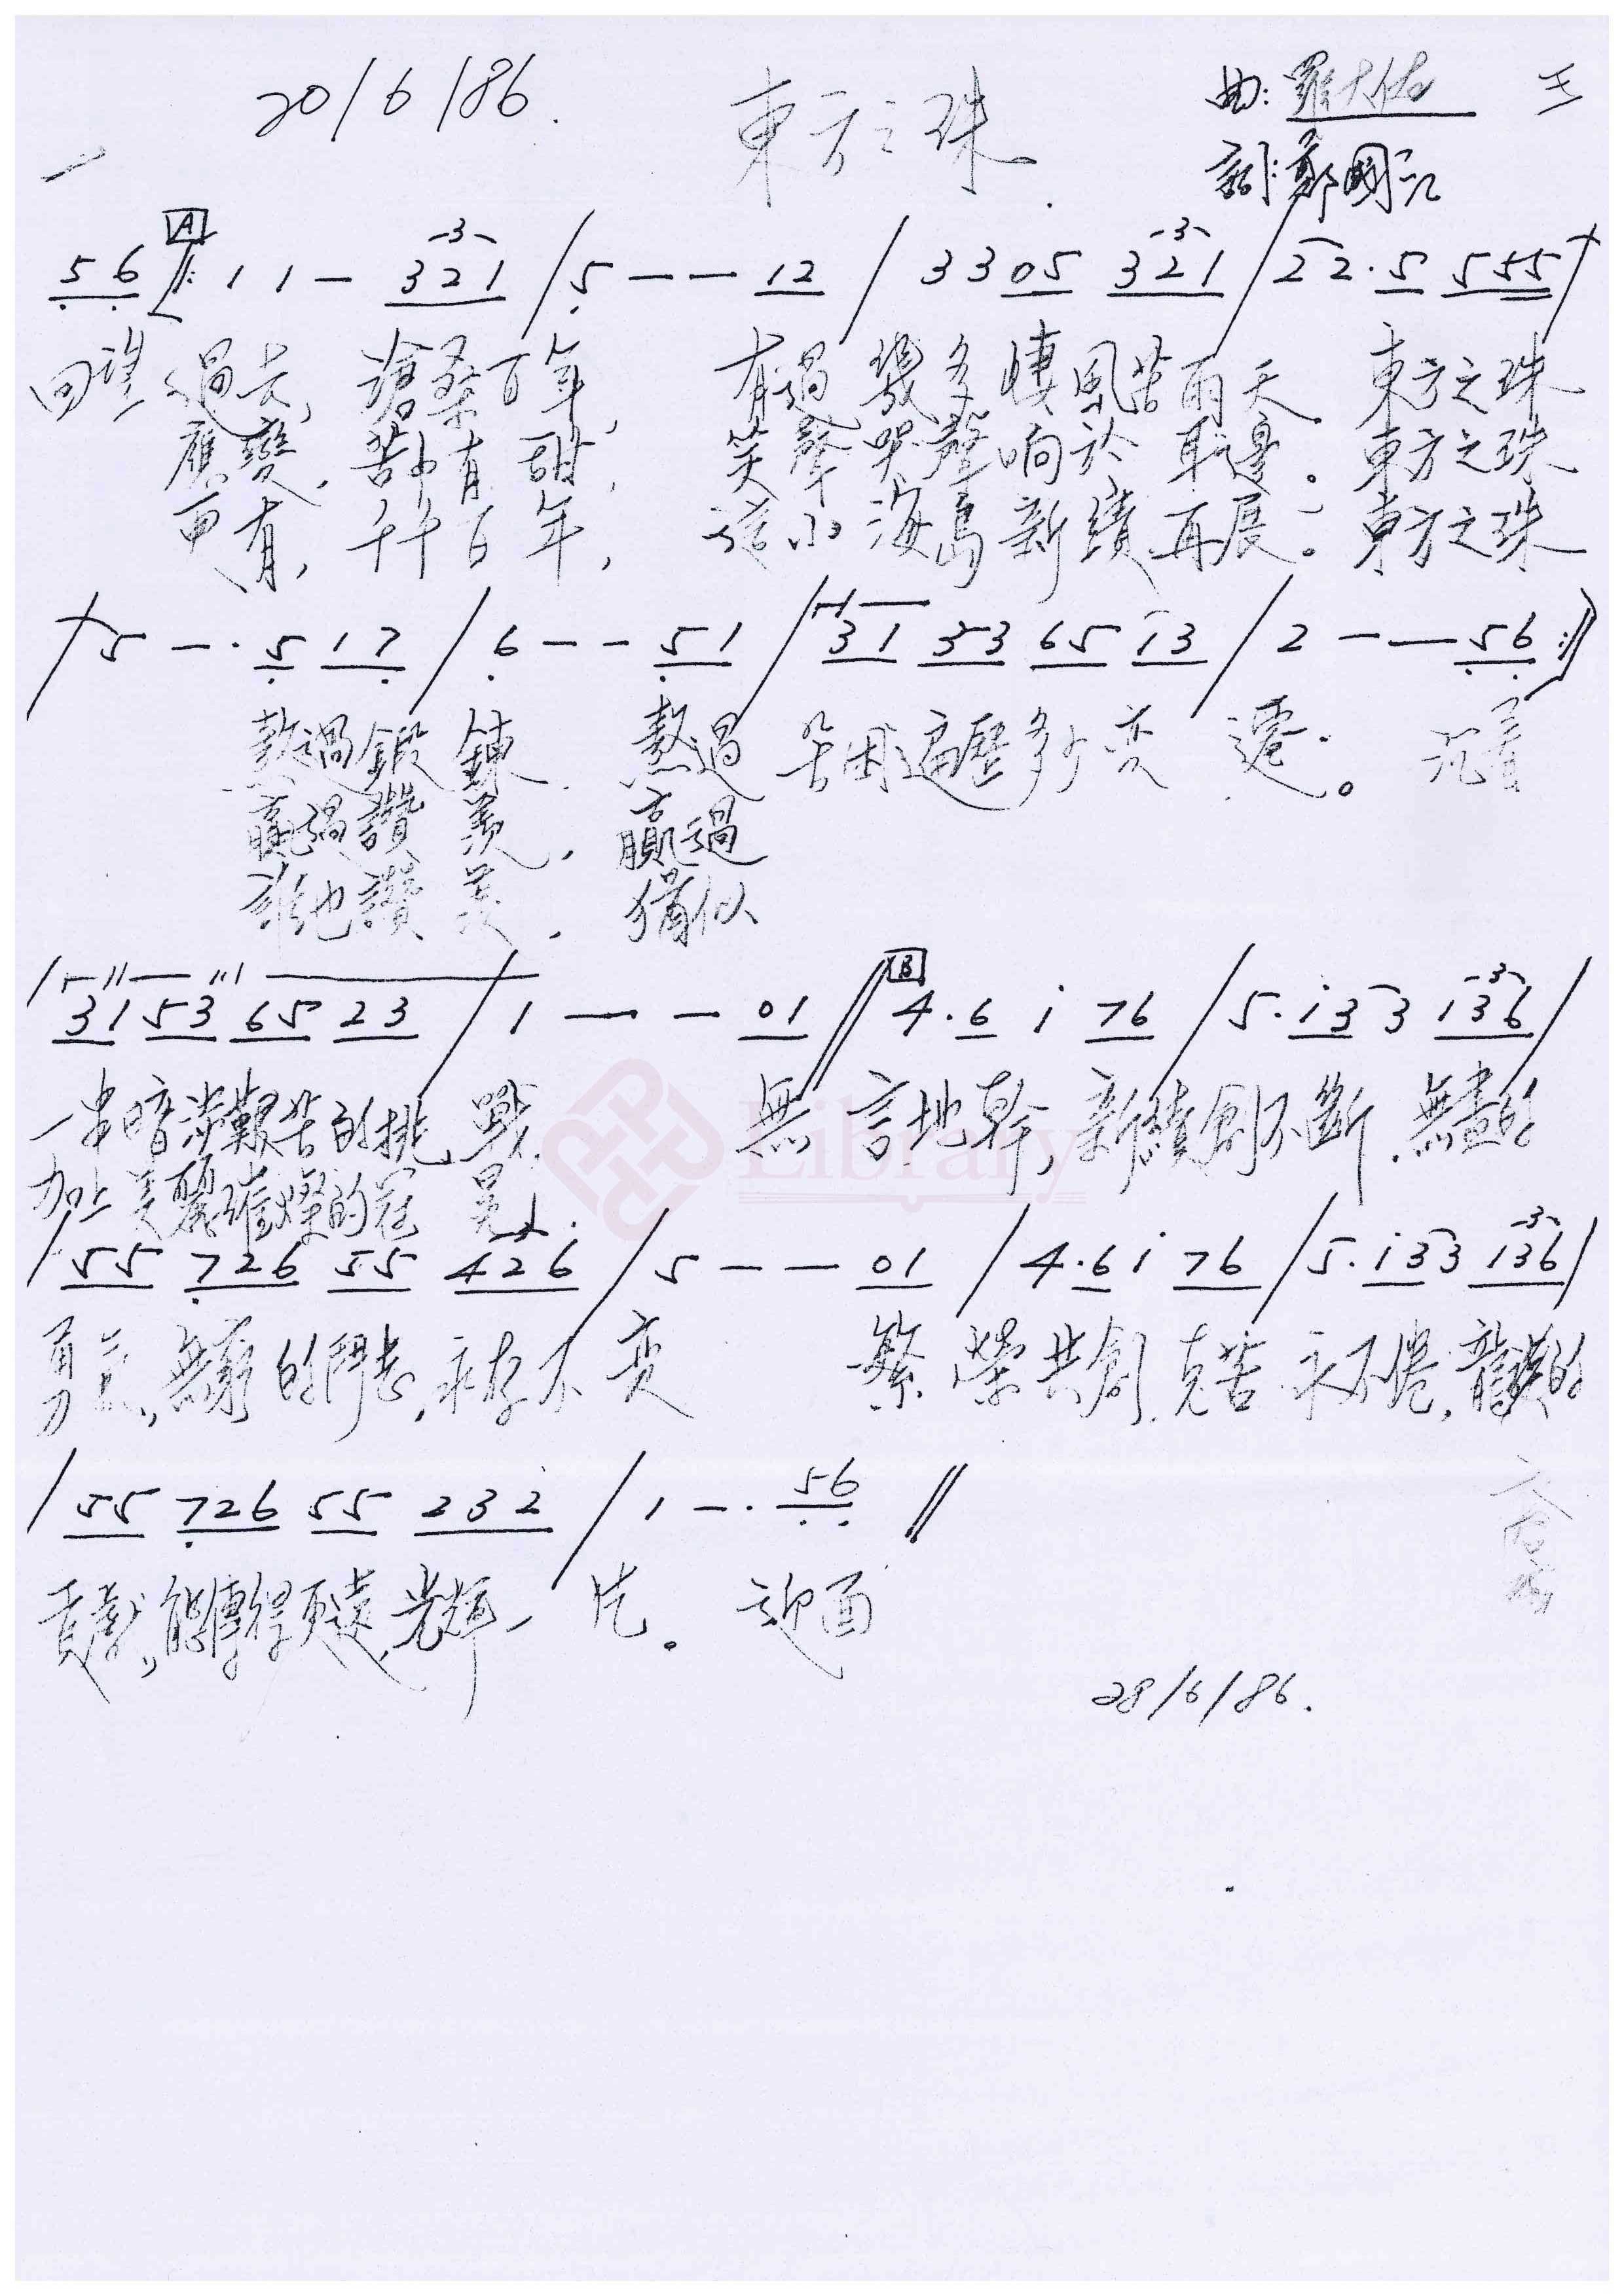 20/6/86. 東方之珠 曲:羅大佑
詞:鄭國江
A
5 6 ‖: 1 1 — 3 2 1 / 5 — — 1 2 / 3 3 0 5 3 2 1 / 2 2 . 5 5 5 5 /
回望 過去, 滄桑百年, 有過幾多悽風苦雨天. 東方之珠
應變, 苦中有甜, 笑聲哭聲响於耳邊。東方之珠
更有, 千千百年, 這小海島新績再展。東方之珠
/ 5 — . 5 1 7 / 6 — — 5 1 / 3 1 3 3 6 5 1 3 / 2 — — 5 6 :‖
熬過鍛鍊. 熬過苦困遍歷多少变遷。沉着
贏過讚羨, 贏過
誰也讚羨, 猶似
/ 3 1 5 3 6 5 2 3 / 1 — — 0 1 // B 4 . 6 i 7 6 / 5 . i 3 3 1 3 6 /
一串暗淡艱苦的挑戰. 無言地幹, 新績創不斷. 無盡的
加上美麗璀燦的冠冕
/ 5 5 7 2 6 5 5 4 2 6 / 5 — — 0 1 / 4 . 6 i 7 6 / 5 . i 3 3 1 3 6 /
勇氣, 無窮的鬥志, 永存不变 繁榮共創, 克苦永不倦, 龍裔的
/ 5 5 7 2 6 5 5 2 3 2 / 1 — . 5 6 //
貢獻, 能傳得更遠, 光輝一片。 迎面
28/6/86.
Library